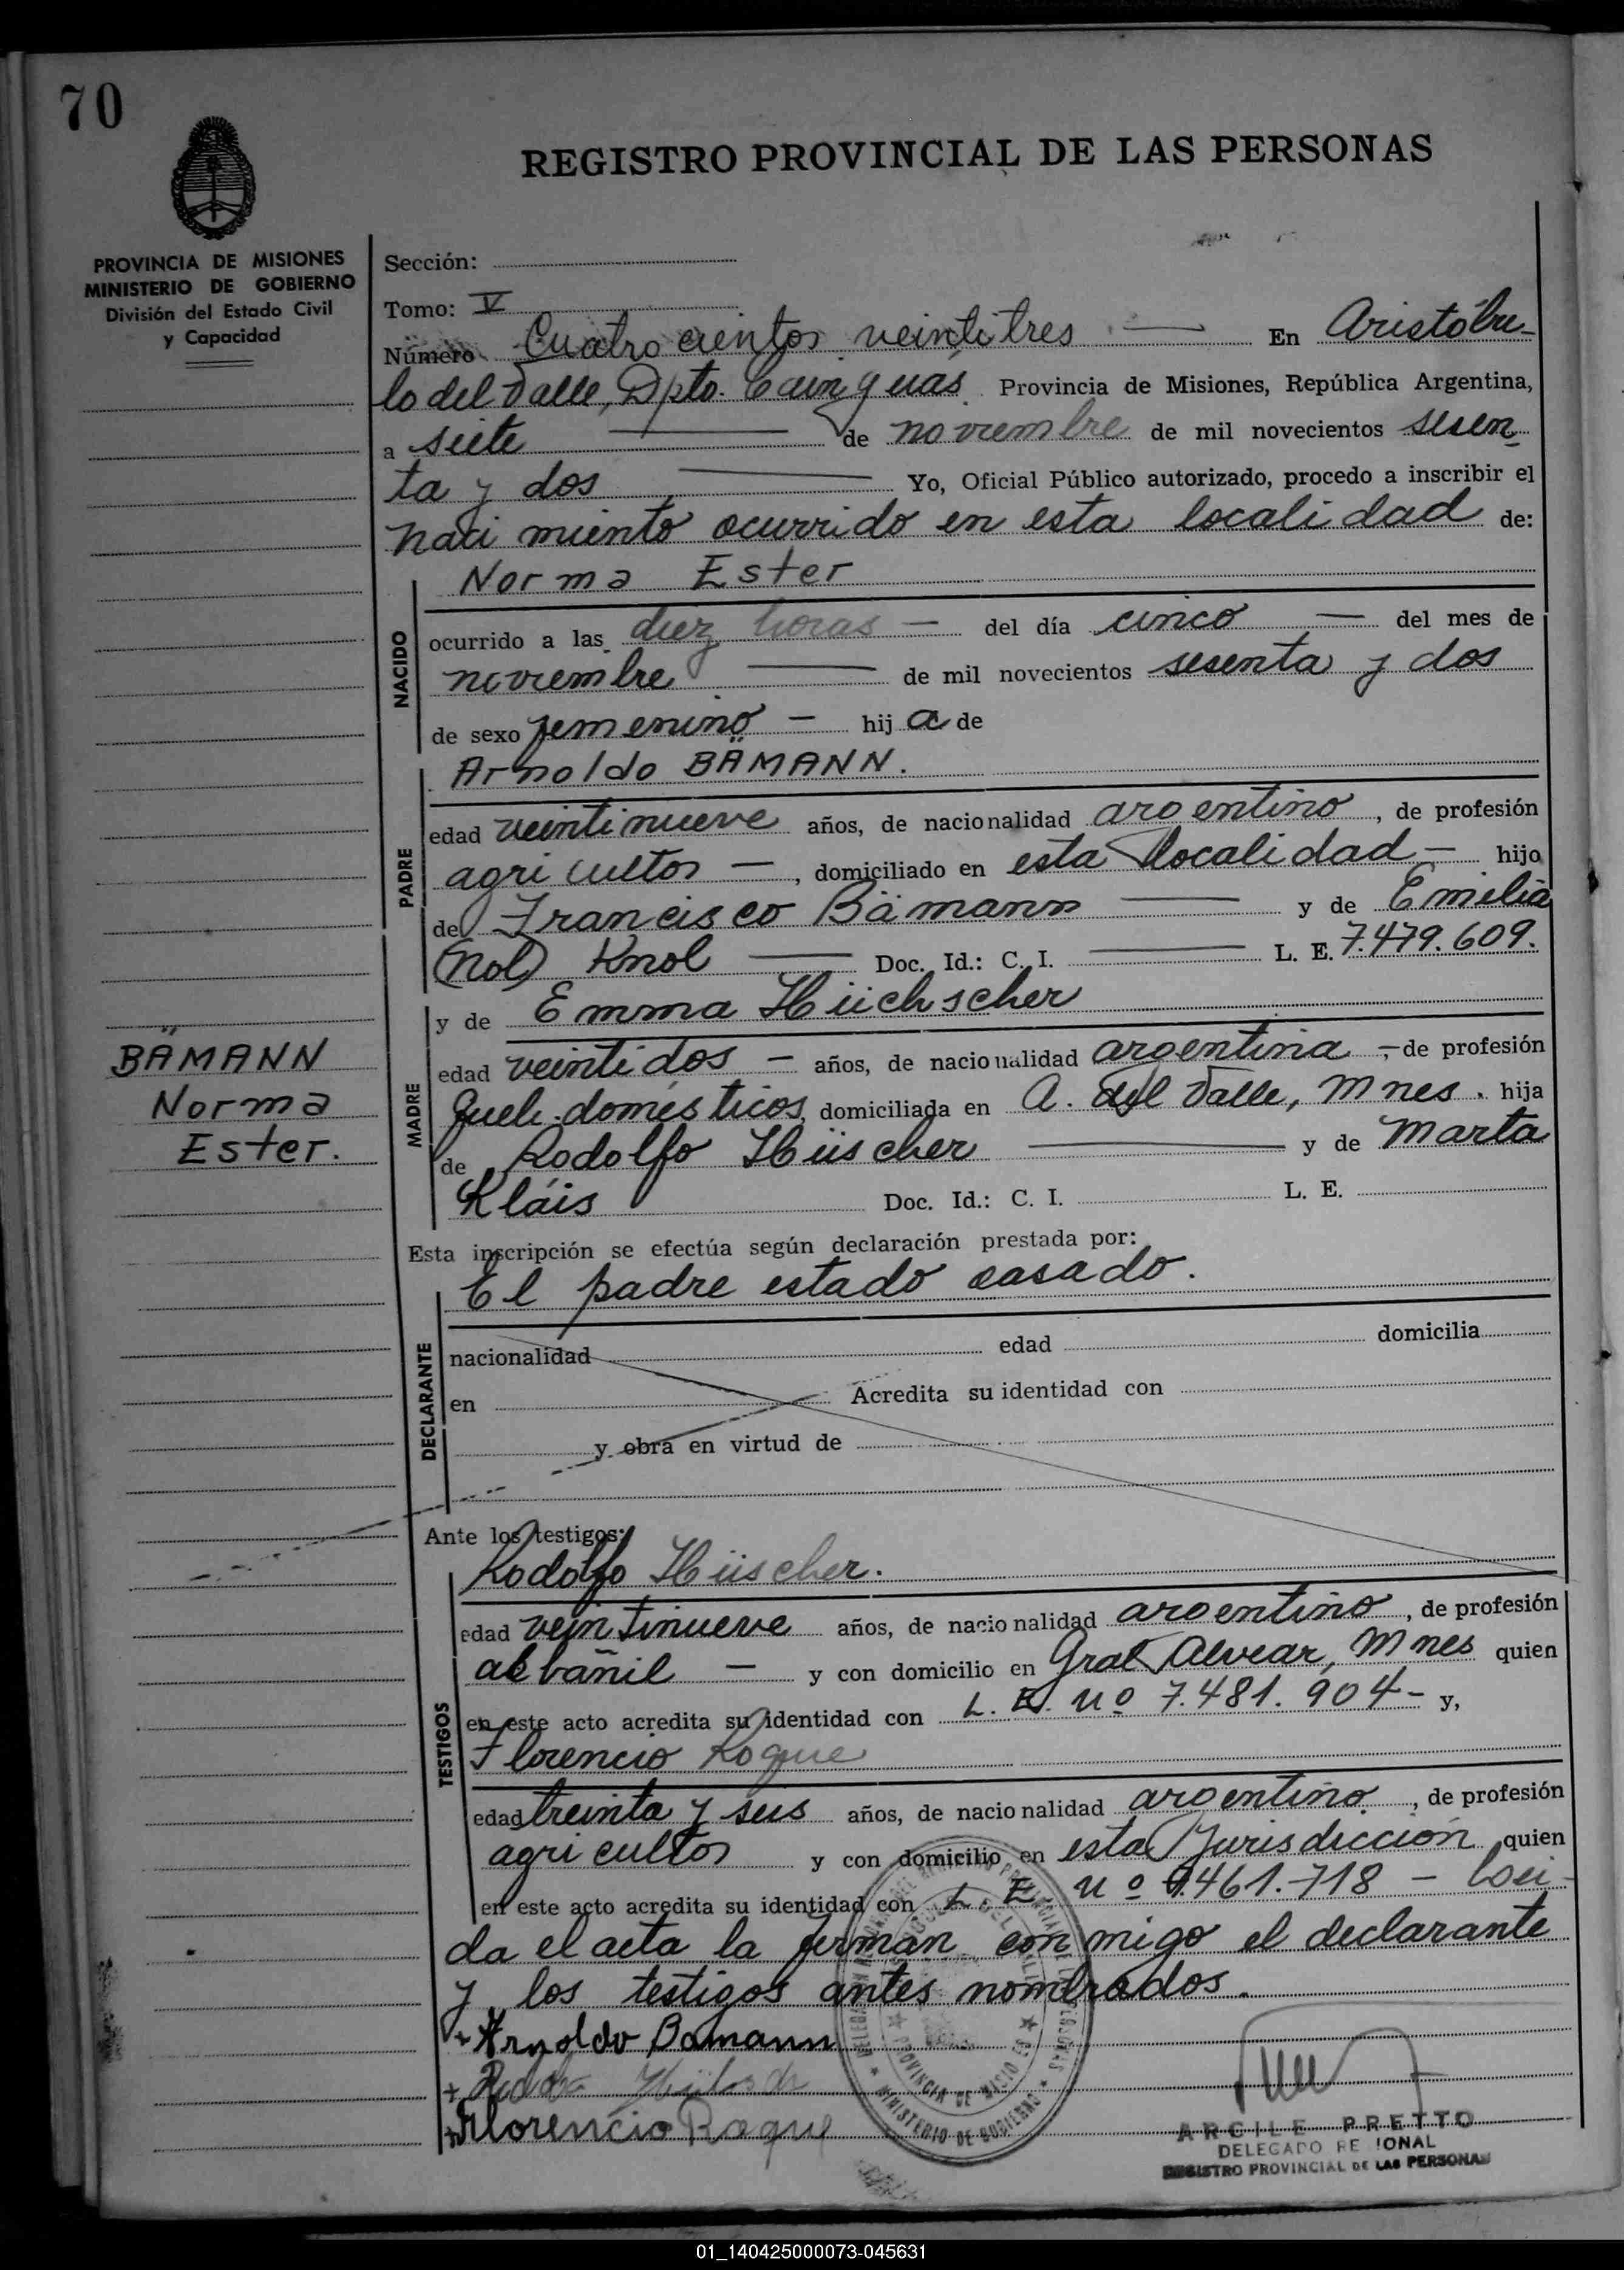 70
REGISTRO PROVINCIAL DE LAS PERSONAS
PROVINCIA DE MISIONES
MINISTERIO DE GOBIERNO
División del Estado Civil
y Capacidad
Sección:
Tomo: V
Número Cuatrocientos veintitres — En Aristóbu-
lo del Valle, Dpto. Cainguás Provincia de Misiones, República Argentina,
a siete — de noviembre de mil novecientos sesen
ta y dos — Yo, Oficial Público autorizado, procedo a inscribir el
nacimiento ocurrido en esta localidad de:
Norma Ester
NACIDO
ocurrido a las diez horas — del día cinco — del mes de
noviembre — de mil novecientos sesenta y dos
de sexo femenino — hija de
Arnoldo BÄMANN.
PADRE
edad veintinueve años, de nacionalidad argentino, de profesión
agricultor —, domiciliado en esta localidad — hijo
de Francisco Bämann — y de Emilia
(Nol) Knol — Doc. Id.: C. I. — L. E. 7.479.609.
y de Emma Hüchscher
MADRE
edad veintidos — años, de nacionalidad argentina -, de profesión
Queh. domésticos, domiciliada en A. del Valle, Mnes. hija
de Rodolfo Hüscher — y de Marta
Kláis Doc. Id.: C. I. L. E.
BÄMANN
Norma
Ester.
Esta inscripción se efectúa según declaración prestada por:
El padre estado casado.
DECLARANTE
nacionalidad edad domicilia
en Acredita su identidad con
y obra en virtud de
Ante los testigos:
Rodolfo Hüscher.
TESTIGOS
edad veintinueve años, de nacionalidad argentino, de profesión
albañil — y con domicilio en Gral Alvear, Mnes quien
en este acto acredita su identidad con L. E. Nº 7.481.904- y,
Florencio Roque
edad treinta y seis años, de nacionalidad argentino, de profesión
agricultor y con domicilio en esta Jurisdicción quien
en este acto acredita su identidad con L E Nº 461.718 — Leí
da el acta la firman conmigo el declarante
y los testigos antes nombrados.
+ Arnoldo Bamann
+
+ Florencio Roque
PROVINCIA DE MISIONES
MINISTERIO DE GOBIERNO
ARGILE PRETTO
DELEGADO RE IONAL
REGISTRO PROVINCIAL DE LAS PERSONAS
01_140425000073-045631